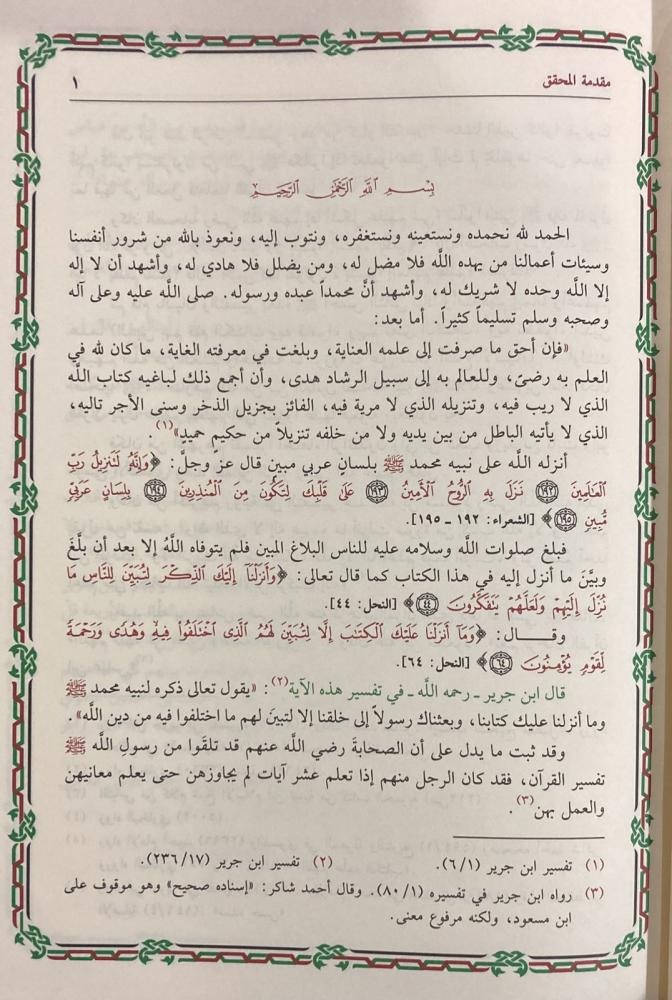 مقدمة المحقق ١
بِسْمِ اللَّهِ الرَّحْمَٰنِ الرَّحِيمِ
الحمد لله نحمده ونستعينه ونستغفره، ونتوب إليه، ونعوذ بالله من شرور أنفسنا
وسيئات أعمالنا من يهده اللَّه فلا مضل له، ومن يضلل فلا هادي له، وأشهد أن لا إله
إلا اللَّه وحده لا شريك له، وأشهد أنَّ محمداً عبده ورسوله. صلى اللَّه عليه وعلى آله
وصحبه وسلم تسليماً كثيراً. أما بعد:
«فإن أحق ما صرفت إلى علمه العناية، وبلغت في معرفته الغاية، ما كان لله في
العلم به رضىً، وللعالم به إلى سبيل الرشاد هدى، وأن أجمع ذلك لباغيه كتاب اللَّه
الذي لا ريب فيه، وتنزيله الذي لا مرية فيه، الفائز بجزيل الذخر وسنى الأجر تاليه،
الذي لا يأتيه الباطل من بين يديه ولا من خلفه تنزيلاً من حكيمٍ حميدٍ»(١).
أنزله اللَّه على نبيه محمد ﷺ بلسانٍ عربي مبين قال عز وجلَّ: ﴿وَإِنَّهُ لَتَنزِيلُ رَبِّ
الْعَالَمِينَ ﴿١٩٢﴾ نَزَلَ بِهِ الرُّوحُ الْأَمِينُ ﴿١٩٣﴾ عَلَىٰ قَلْبِكَ لِتَكُونَ مِنَ الْمُنذِرِينَ ﴿١٩٤﴾ بِلِسَانٍ عَرَبِيٍّ
مُّبِينٍ ﴿١٩٥﴾﴾ [الشعراء: ١٩٢ ـ ١٩٥].
فبلغ صلوات اللَّه وسلامه عليه للناس البلاغ المبين فلم يتوفاه اللَّهُ إلا بعد أن بلَّغَ
وبيَّنَ ما أنزل إليه في هذا الكتاب كما قال تعالى: ﴿وَأَنزَلْنَا إِلَيْكَ الذِّكْرَ لِتُبَيِّنَ لِلنَّاسِ مَا
نُزِّلَ إِلَيْهِمْ وَلَعَلَّهُمْ يَتَفَكَّرُونَ ﴿٤٤﴾﴾ [النحل: ٤٤].
وقـــال: ﴿وَمَا أَنزَلْنَا عَلَيْكَ الْكِتَابَ إِلَّا لِتُبَيِّنَ لَهُمُ الَّذِي اخْتَلَفُوا فِيهِ وَهُدًى وَرَحْمَةً
لِّقَوْمٍ يُؤْمِنُونَ ﴿٦٤﴾﴾ [النحل: ٦٤].
قال ابن جرير ـ رحمه اللَّه ـ في تفسير هذه الآية(٢): «يقول تعالى ذكره لنبيه محمد ﷺ
وما أنزلنا عليك كتابنا، وبعثناك رسولاً إلى خلقنا إلا لتبينَ لهم ما اختلفوا فيه من دين اللَّه».
وقد ثبت ما يدل على أن الصحابةَ رضي اللَّه عنهم قد تلقَوا من رسولِ اللَّه ﷺ
تفسير القرآن، فقد كان الرجل منهم إذا تعلم عشر آيات لم يجاوزهن حتى يعلم معانيهن
والعمل بهن(٣).
(١) تفسير ابن جرير (٦/١). (٢) تفسير ابن جرير (٢٣٦/١٧).
(٣) رواه ابن جرير في تفسيره (٨٠/١). وقال أحمد شاكر: «إسناده صحيح» وهو موقوف على
ابن مسعود، ولكنه مرفوع معنى.